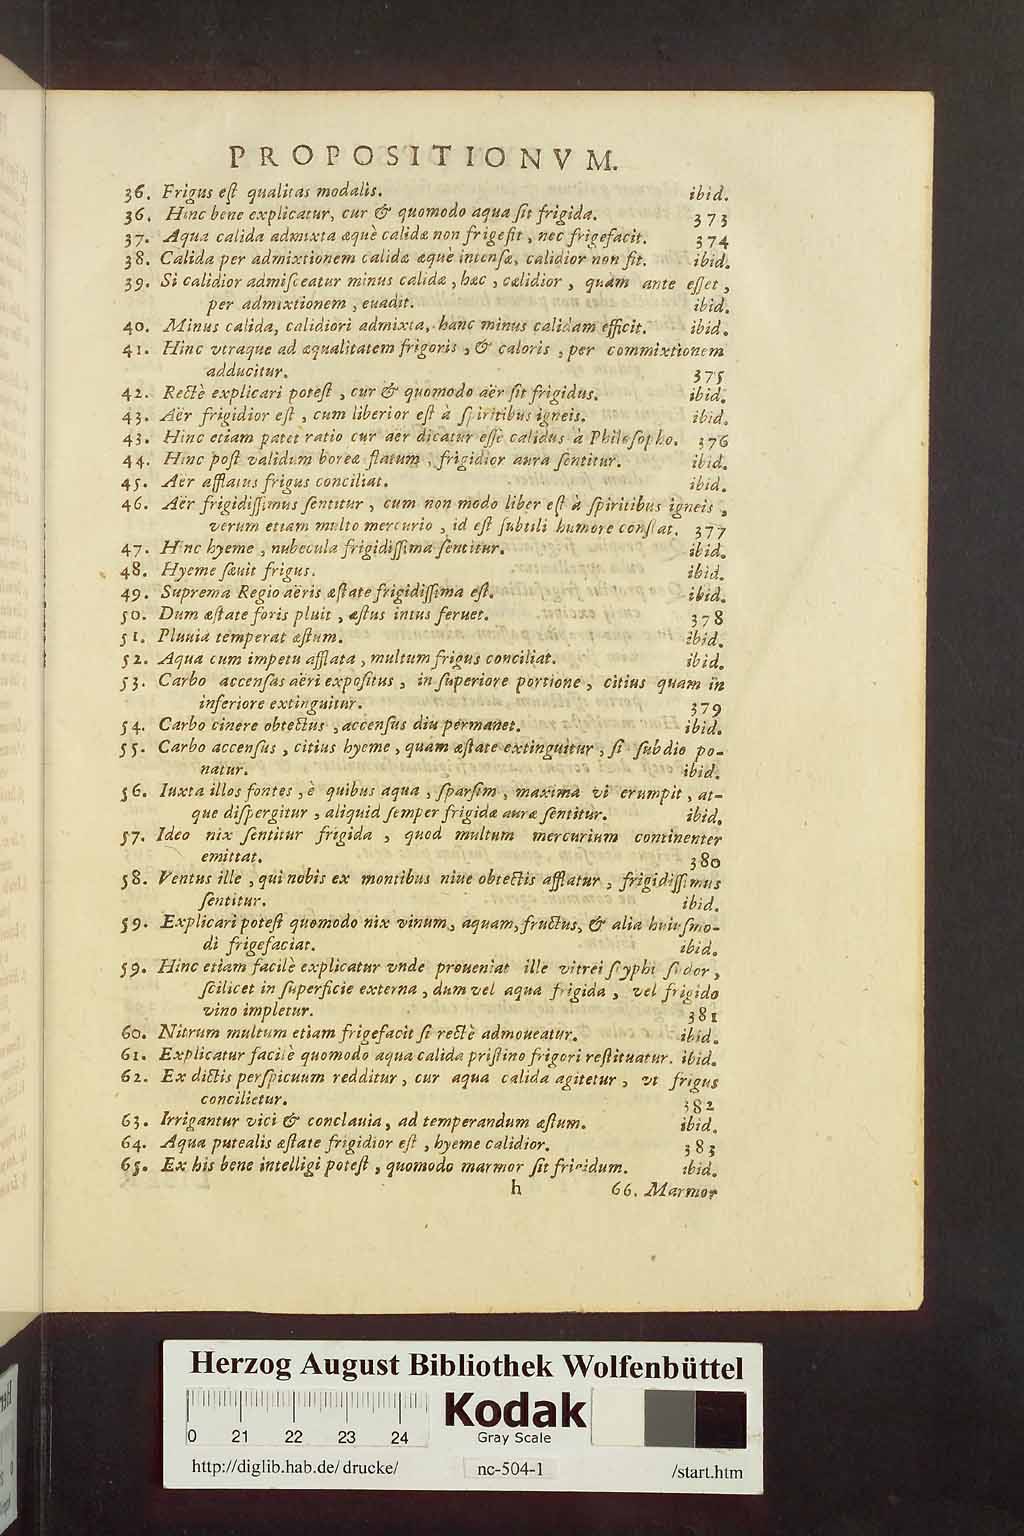 PROPOSITIONVM.
36. Frigus eſt qualitas modalis. ibid.
36. Hinc bene explicatur, cur & quomodo aqua ſit frigida. 373
37. Aqua calida admixta æquè calidæ non frigefit, nec frigefacit. 374
38. Calida per admixtionem calidæ æquè intenſæ, calidior non fit. ibid.
39. Si calidior admiſceatur minus calidæ, hæc, calidior, quàm ante eſſet,
per admixtionem, euadit. ibid.
40. Minus calida, calidiori admixta, hanc minus calidam efficit. ibid.
41. Hinc vtraque ad æqualitatem frigoris, & caloris, per commixtionem
adducitur. 375
42. Rectè explicari poteſt, cur & quomodo aër ſit frigidus. ibid.
43. Aër frigidior eſt, cum liberior eſt à ſpiritibus igneis. ibid.
43. Hinc etiam patet ratio cur aër dicatur eſſe calidus à Philoſopho. 376
44. Hinc poſt validum boreæ flatum, frigidior aura ſentitur. ibid.
45. Aër afflatus frigus conciliat. ibid.
46. Aër frigidiſſimus ſentitur, cum non modo liber eſt à ſpiritibus igneis,
verum etiam multo mercurio, id eſt ſubtili humore conſtat. 377
47. Hinc hyeme, nubecula frigidiſſima ſentitur. ibid.
48. Hyeme ſæuit frigus. ibid.
49. Suprema Regio aëris æſtate frigidiſſima eſt. ibid.
50. Dum æſtate foris pluit, æſtus intus feruet. 378
51. Pluuia temperat æſtum. ibid.
52. Aqua cum impetu afflata, multum frigus conciliat. ibid.
53. Carbo accenſus aëri expoſitus, in ſuperiore portione, citius quam in
inferiore extinguitur. 379
54. Carbo cinere obtectus, accenſus diu permanet. ibid.
55. Carbo accenſus, citius hyeme, quam æſtate extinguitur, ſi ſub dio po-
natur. ibid.
56. Iuxta illos fontes, è quibus aqua, ſparſim, maxima vi erumpit, at-
que diſpergitur, aliquid ſemper frigidæ auræ ſentitur. ibid.
57. Ideo nix ſentitur frigida, quod multum mercurium continenter
emittat. 380
58. Ventus ille, qui nobis ex montibus niue obtectis afflatur, frigidiſſimus
ſentitur. ibid.
59. Explicari poteſt quomodo nix vinum, aquam, fructus, & alia huiuſmo-
di frigefaciat. ibid.
59. Hinc etiam facilè explicatur vnde proueniat ille vitrei ſcyphi ſudor,
ſcilicet in ſuperficie externa, dum vel aqua frigida, vel frigido
vino impletur. 381
60. Nitrum multum etiam frigefacit ſi rectè admoueatur. ibid.
61. Explicatur facilè quomodo aqua calida priſtino frigori reſtituatur. ibid.
62. Ex dictis perſpicuum redditur, cur aqua calida agitetur, vt frigus
concilietur. 382
63. Irrigantur vici & conclauia, ad temperandum æſtum. ibid.
64. Aqua putealis æſtate frigidior eſt, hyeme calidior. 383
65. Ex his bene intelligi poteſt, quomodo marmor ſit frigidum. ibid.
h 66. Marmor
Herzog August Bibliothek Wolfenbüttel
Kodak
Gray Scale
0 21 22 23 24
http://diglib.hab.de/drucke/ nc-504-1 /start.htm